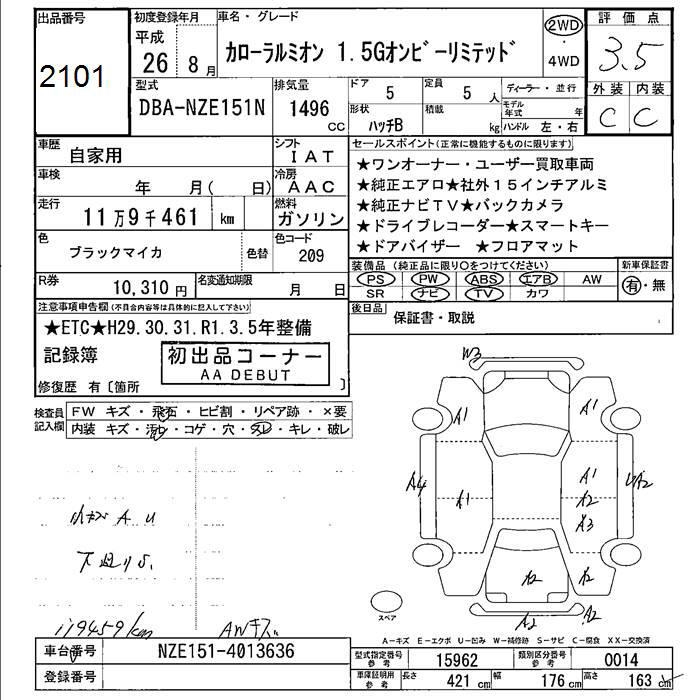 出品番号
2101
初度登録年月
平成
26年 8月
車名・グレード
カローラルミオン 1.5Gオンビーリミテッド
2WD
・
4WD
評価点
3.5
外装 内装
C C
型式
DBA-NZE151N
排気量
1496
CC
ドア
5
定員
5 人
形状
ハッチB
積載
kg
ディーラー・並行
モデル年式 年
ハンドル 左・右
車歴
自家用
シフト
IAT
車検
年 月( 日)
冷房
AAC
走行
11万9千461 km
燃料
ガソリン
色
ブラックマイカ
色替
色コード
209
R券
10,310円
名変通知期限
月 日
セールスポイント(正常に機能するものに限ります)
★ワンオーナー・ユーザー買取車両
★純正エアロ★社外15インチアルミ
★純正ナビTV★バックカメラ
★ドライブレコーダー★スマートキー
★ドアバイザー ★フロアマット
装備品(純正品に限り○をつけてください)
PS PW ABS エアB AW
SR ナビ TV カワ
新車保証書
有・無
後日品
保証書・取説
注意事項申告欄(不具合内容等は具体的に記入して下さい)
★ETC★H29.30.31.R1.3.5年整備
記録簿
初出品コーナー
AA DEBUT
修復歴 有〔箇所 〕
検査員記入欄
FW キズ・飛石・ヒビ割・リペア跡・×要
内装 キズ・汚レ・コゲ・穴・スレ・キレ・破レ
小キズ A U
下廻りS.
119459km
AWキズ
W3
A1
A1
A4
A1
A1
A2
A3
UA2
A2
A2
A2
A2
スペア
A-キズ E-エクボ U-凹み W-補修跡 S-サビ C-腐食 XX-交換済
車台番号
NZE151-4013636
登録番号
型式指定番号 参考
15962
類別区分番号 参考
0014
車庫証明用 参考
長さ 421 cm 幅 176 cm 高さ 163 cm